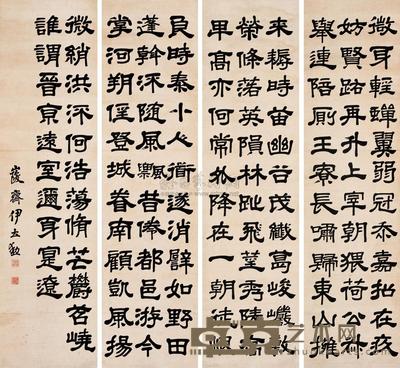 微身輕蟬翼弱冠忝嘉招在疚
妨賢路再升上宰朝猥荷公叔
舉連陪厠王寮長嘯歸東山擁
耒耨時苗幽谷茂纖葛峻巖敷
榮條落英隕林趾飛莖秀陵喬
卑高亦何常升降在一朝徒恨
良時泰小人道遂消譬如野田
蓬斡流隨風飄昔倦都邑游今
掌河朔徭登城眷南顧凱風揚
微綃洪流何浩蕩脩芒鬱苕嶢
誰謂晉京遠室邇身寔遼
峻齋伊立勳